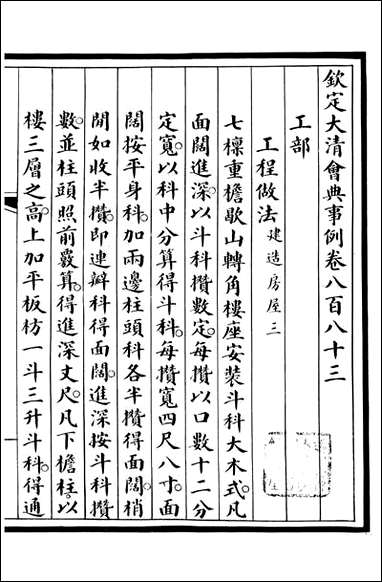 欽定大清會典事例卷八百八十三
工部
工程做法建造房屋三
七檁重檐歇山轉角樓座安裝斗科大木式。凡
面闊進深。以斗科攢數定。每攢以口數十二分
定寬。以科中分算得斗科。每攢寬四尺八寸。面
闊按平身科。加兩邊柱頭科各半攢。得面闊。梢
間如收半攢。即連瓣科得面闊。進深按斗科攢
數。並柱頭照前覈算。得進深丈尺。凡下檐柱。以
樓三層之高。上加平板枋一斗三升斗科。得通